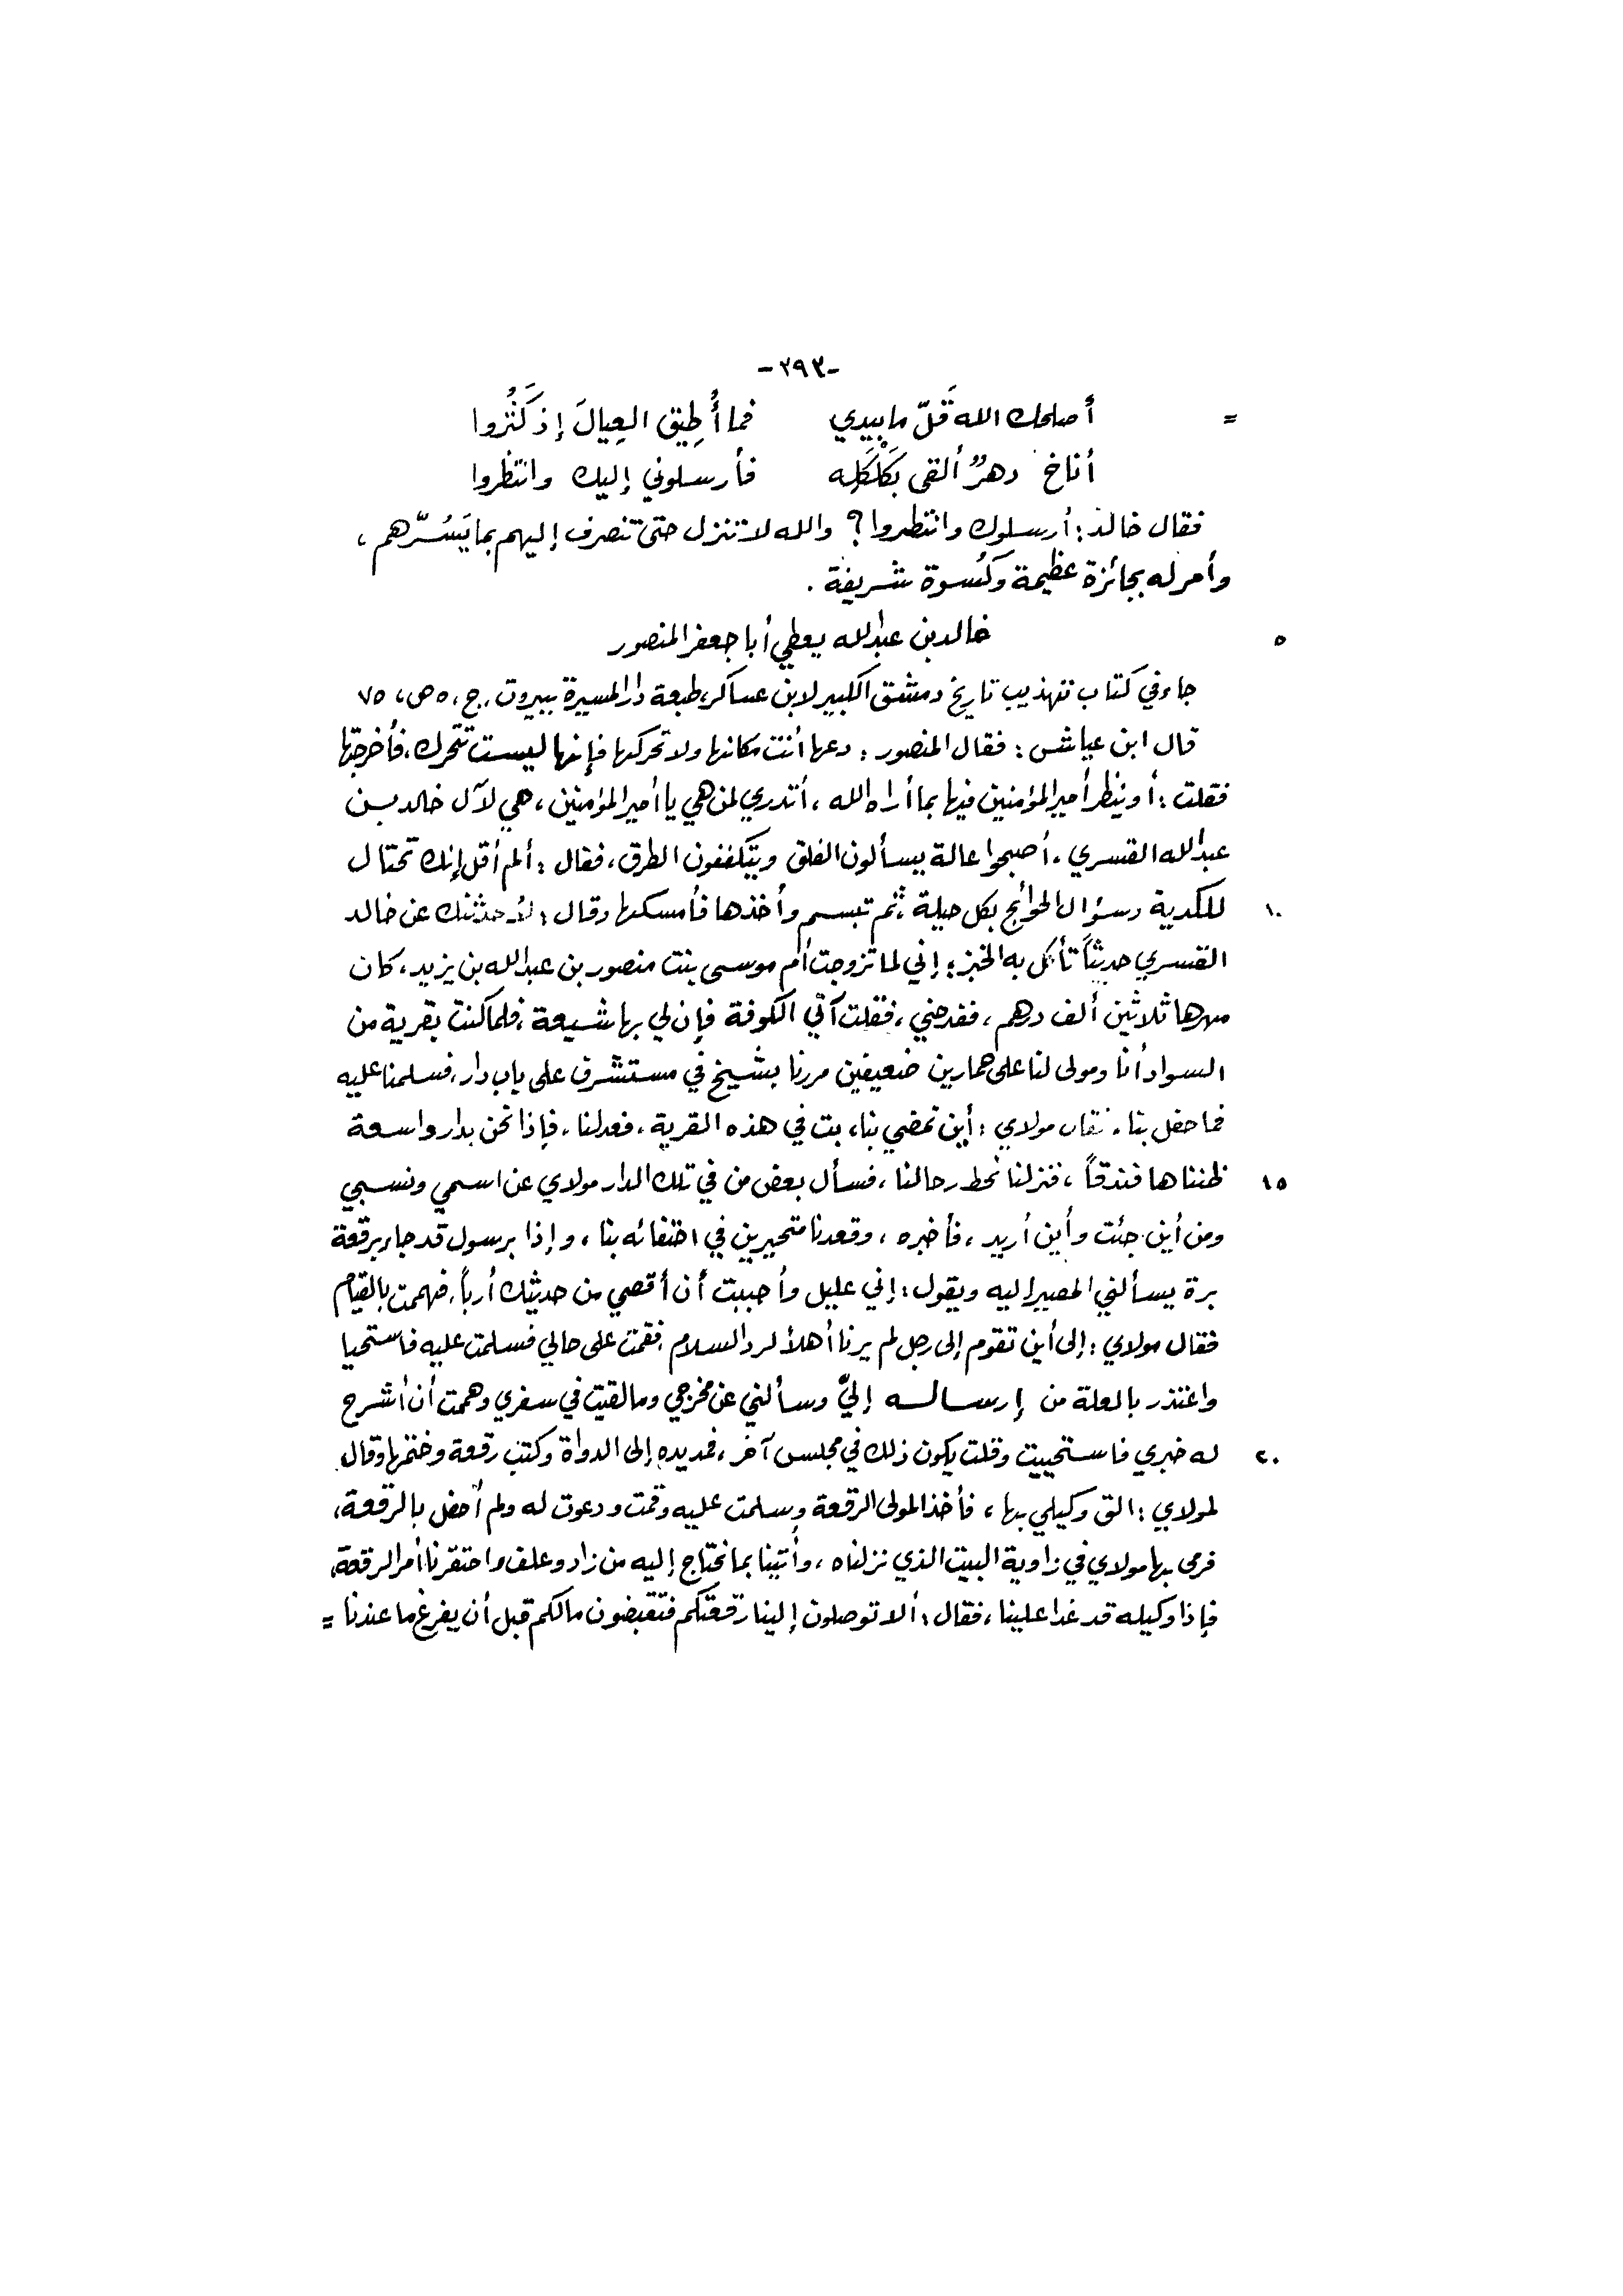 -٢٩٣-
= أصلحك الله قَلّ ما بيدي فما أُطِيق العِيالَ إذ كَثُروا
أناخ دهرٌ ألقى بكَلْكَلِه فأرسلوني إليك وانتظروا
فقال خالد: أرسلوك وانتظروا؟ والله لا تنزل حتى تنصرف إليهم بما يَسُرّهم،
وأمر له بجائزة عظيمة وكُسوة شريفة.
٥ خالد بن عبد الله يعطي أبا جعفر المنصور
جاء في كتاب تهذيب تاريخ دمشق الكبير لابن عساكر، طبعة دار المسيرة ببيروت، ج، ٥ ص، ٧٥
قال ابن عياش: فقال المنصور: دعها أنت مكانها ولا تحركها فإنها ليست تتحرك، فأخرجتها
فقلت: أو ينظر أمير المؤمنين فيها بما أراه الله، أتدري لمن هي يا أمير المؤمنين، هي لآل خالد بن
عبد الله القسري، أصبحوا عالة يسألون الفلق ويتكففون الطرق، فقال: ألم أقل إنك تحتال
١٠ للكدية وسؤال الحوائج بكل حيلة، ثم تبسم وأخذها فأمسكها وقال: لأحدثنك عن خالد
القسري حديثاً تأكل به الخبز: إني لما تزوجت أم موسى بنت منصور بن عبد الله بن يزيد، كان
مهرها ثلاثين ألف درهم، ففدحني، فقلت آتي الكوفة فإن لي بها شيعة، فلما كنت بقرية من
السواد أنا ومولى لنا على حمارين ضعيفين مررنا بشيخ في مستشرف على باب دار، فسلمنا عليه
فما حفل بنا، فقال مولاي: أين تمضي بنا، بت في هذه القرية، فعدلنا، فإذا نحن بدار واسعة
١٥ ظنناها فندقاً، فنزلنا نحط رحالنا، فسأل بعض من في تلك الدار مولاي عن اسمي ونسبي
ومن أين جئت وأين أريد، فأخبره، وقعدنا متحيرين في اختفائه بنا، وإذا برسول قد جاء برقعة
برة يسألني المصير اليه ويقول: إني عليل وأحببت أن أقصي من حديثك أرباً، فهممت بالقيام
فقال مولاي: إلى أين تقوم إلى رجل لم يرنا أهلاً لرد السلام، فقمت على حالي فسلمت عليه فاستحيا
واعتذر بالعلة من إرساله إليَّ وسألني عن مخرجي وما لقيت في سفري وهممت أن أشرح
٢٠ له خبري فاستحييت وقلت يكون ذلك في مجلس آخر، فمد يده إلى الدواة وكتب رقعة وختمها وقال
لمولاي: الق وكيلي بها، فأخذ المولى الرقعة وسلمت عليه وقمت ودعوت له ولم أحفل بالرقعة،
فرمى بها مولاي في زاوية البيت الذي نزلناه، وأتينا بما نحتاج إليه من زاد وعلف واحتقرنا أمر الرقعة،
فإذا وكيله قد غدا علينا، فقال: ألا توصلون إلينا رقعتكم فتقبضون مالكم قبل أن يفرغ ما عندنا =